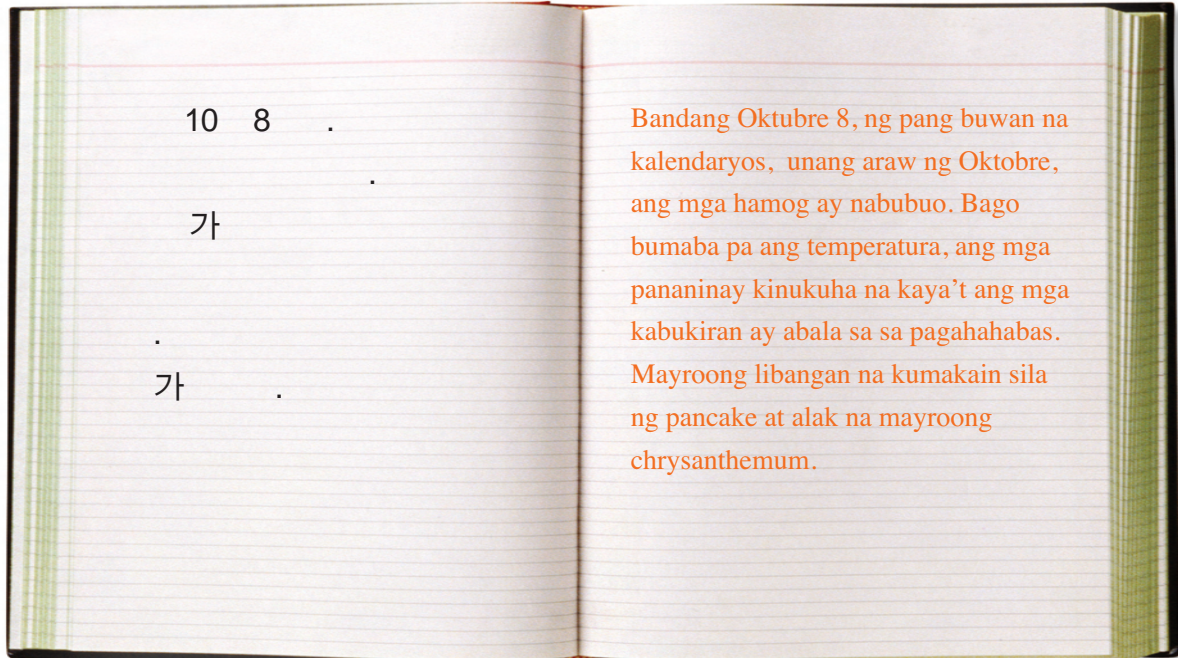 10 8 .
.
가
.
가 .
Bandang Oktubre 8, ng pang buwan na
kalendaryos, unang araw ng Oktobre,
ang mga hamog ay nabubuo. Bago
bumaba pa ang temperatura, ang mga
pananinay kinukuha na kaya’t ang mga
kabukiran ay abala sa sa pagahahabas.
Mayroong libangan na kumakain sila
ng pancake at alak na mayroong
chrysanthemum.